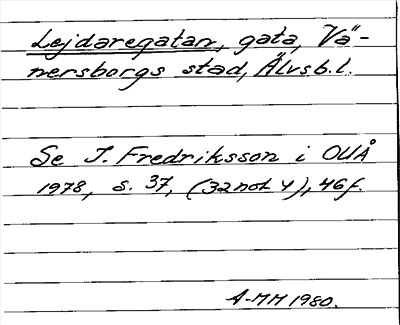 Lejdaregatan, gata, Vä-
nersborgs stad, Älvsb.l.
Se I. Fredriksson i OUÅ
1978, s. 37, (32 not 4), 46f.
A-MM 1980.